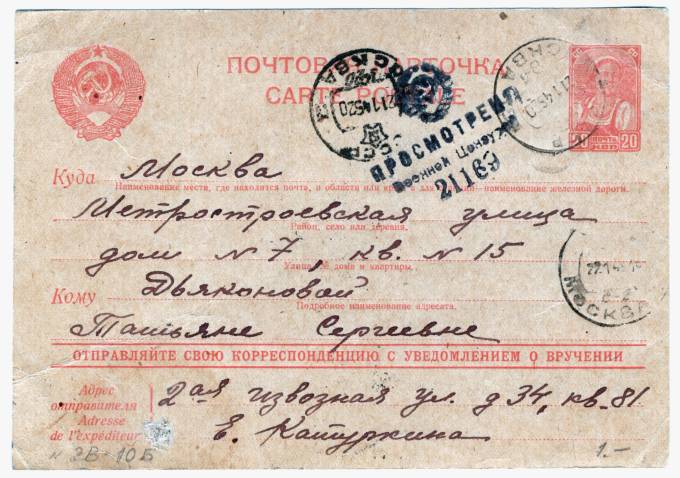 ПОЧТОВАЯ КАРТОЧКА
CARTE POSTALE
ПРОСМОТРЕНО
Военной Цензурой
21189
МОСКВА
22 1 45 20
СССР
МОСКВА
22 1 45 20
ПОЧТА
20
20
Куда Москва
Наименование места, где находится почта, а области или края, а для станции—наименование железной дороги.
Метростроевская улица
Район, село или деревня.
дом N 7, кв. N 15
Улица, № дома и квартиры.
22 1 45
МОСКВА
Кому Дьяконовой
Подробное наименование адресата.
Татьяне Сергеевне
ОТПРАВЛЯЙТЕ СВОЮ КОРРЕСПОНДЕНЦИЮ С УВЕДОМЛЕНИЕМ О ВРУЧЕНИИ
Адрес отправителя
Adresse de l'expéditeur
2ая извозная ул. д 34, кв. 81
Е. Катуркина
N 3В-10Б
1.-